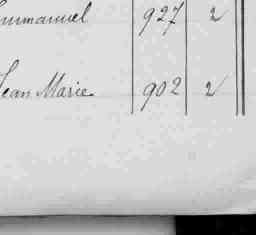 Emmanuel 927 2
Jean Marie 902 2